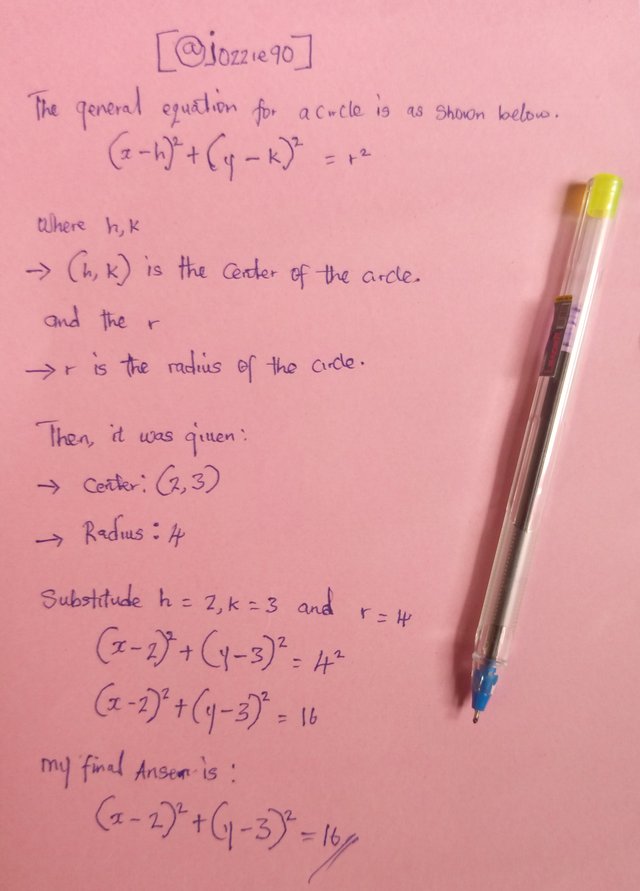 [@jozzie90]
The general equation for a circle is as shown below.
(x-h)² + (y-k)² = r²
Where h, k
→ (h, k) is the Center of the circle.
and the r
→ r is the radius of the circle.
Then, it was given:
→ Center: (2,3)
→ Radius: 4
Substitute h = 2, k = 3 and r = 4
(x-2)² + (y-3)² = 4²
(x-2)² + (y-3)² = 16
My final Answer is:
(x-2)² + (y-3)² = 16